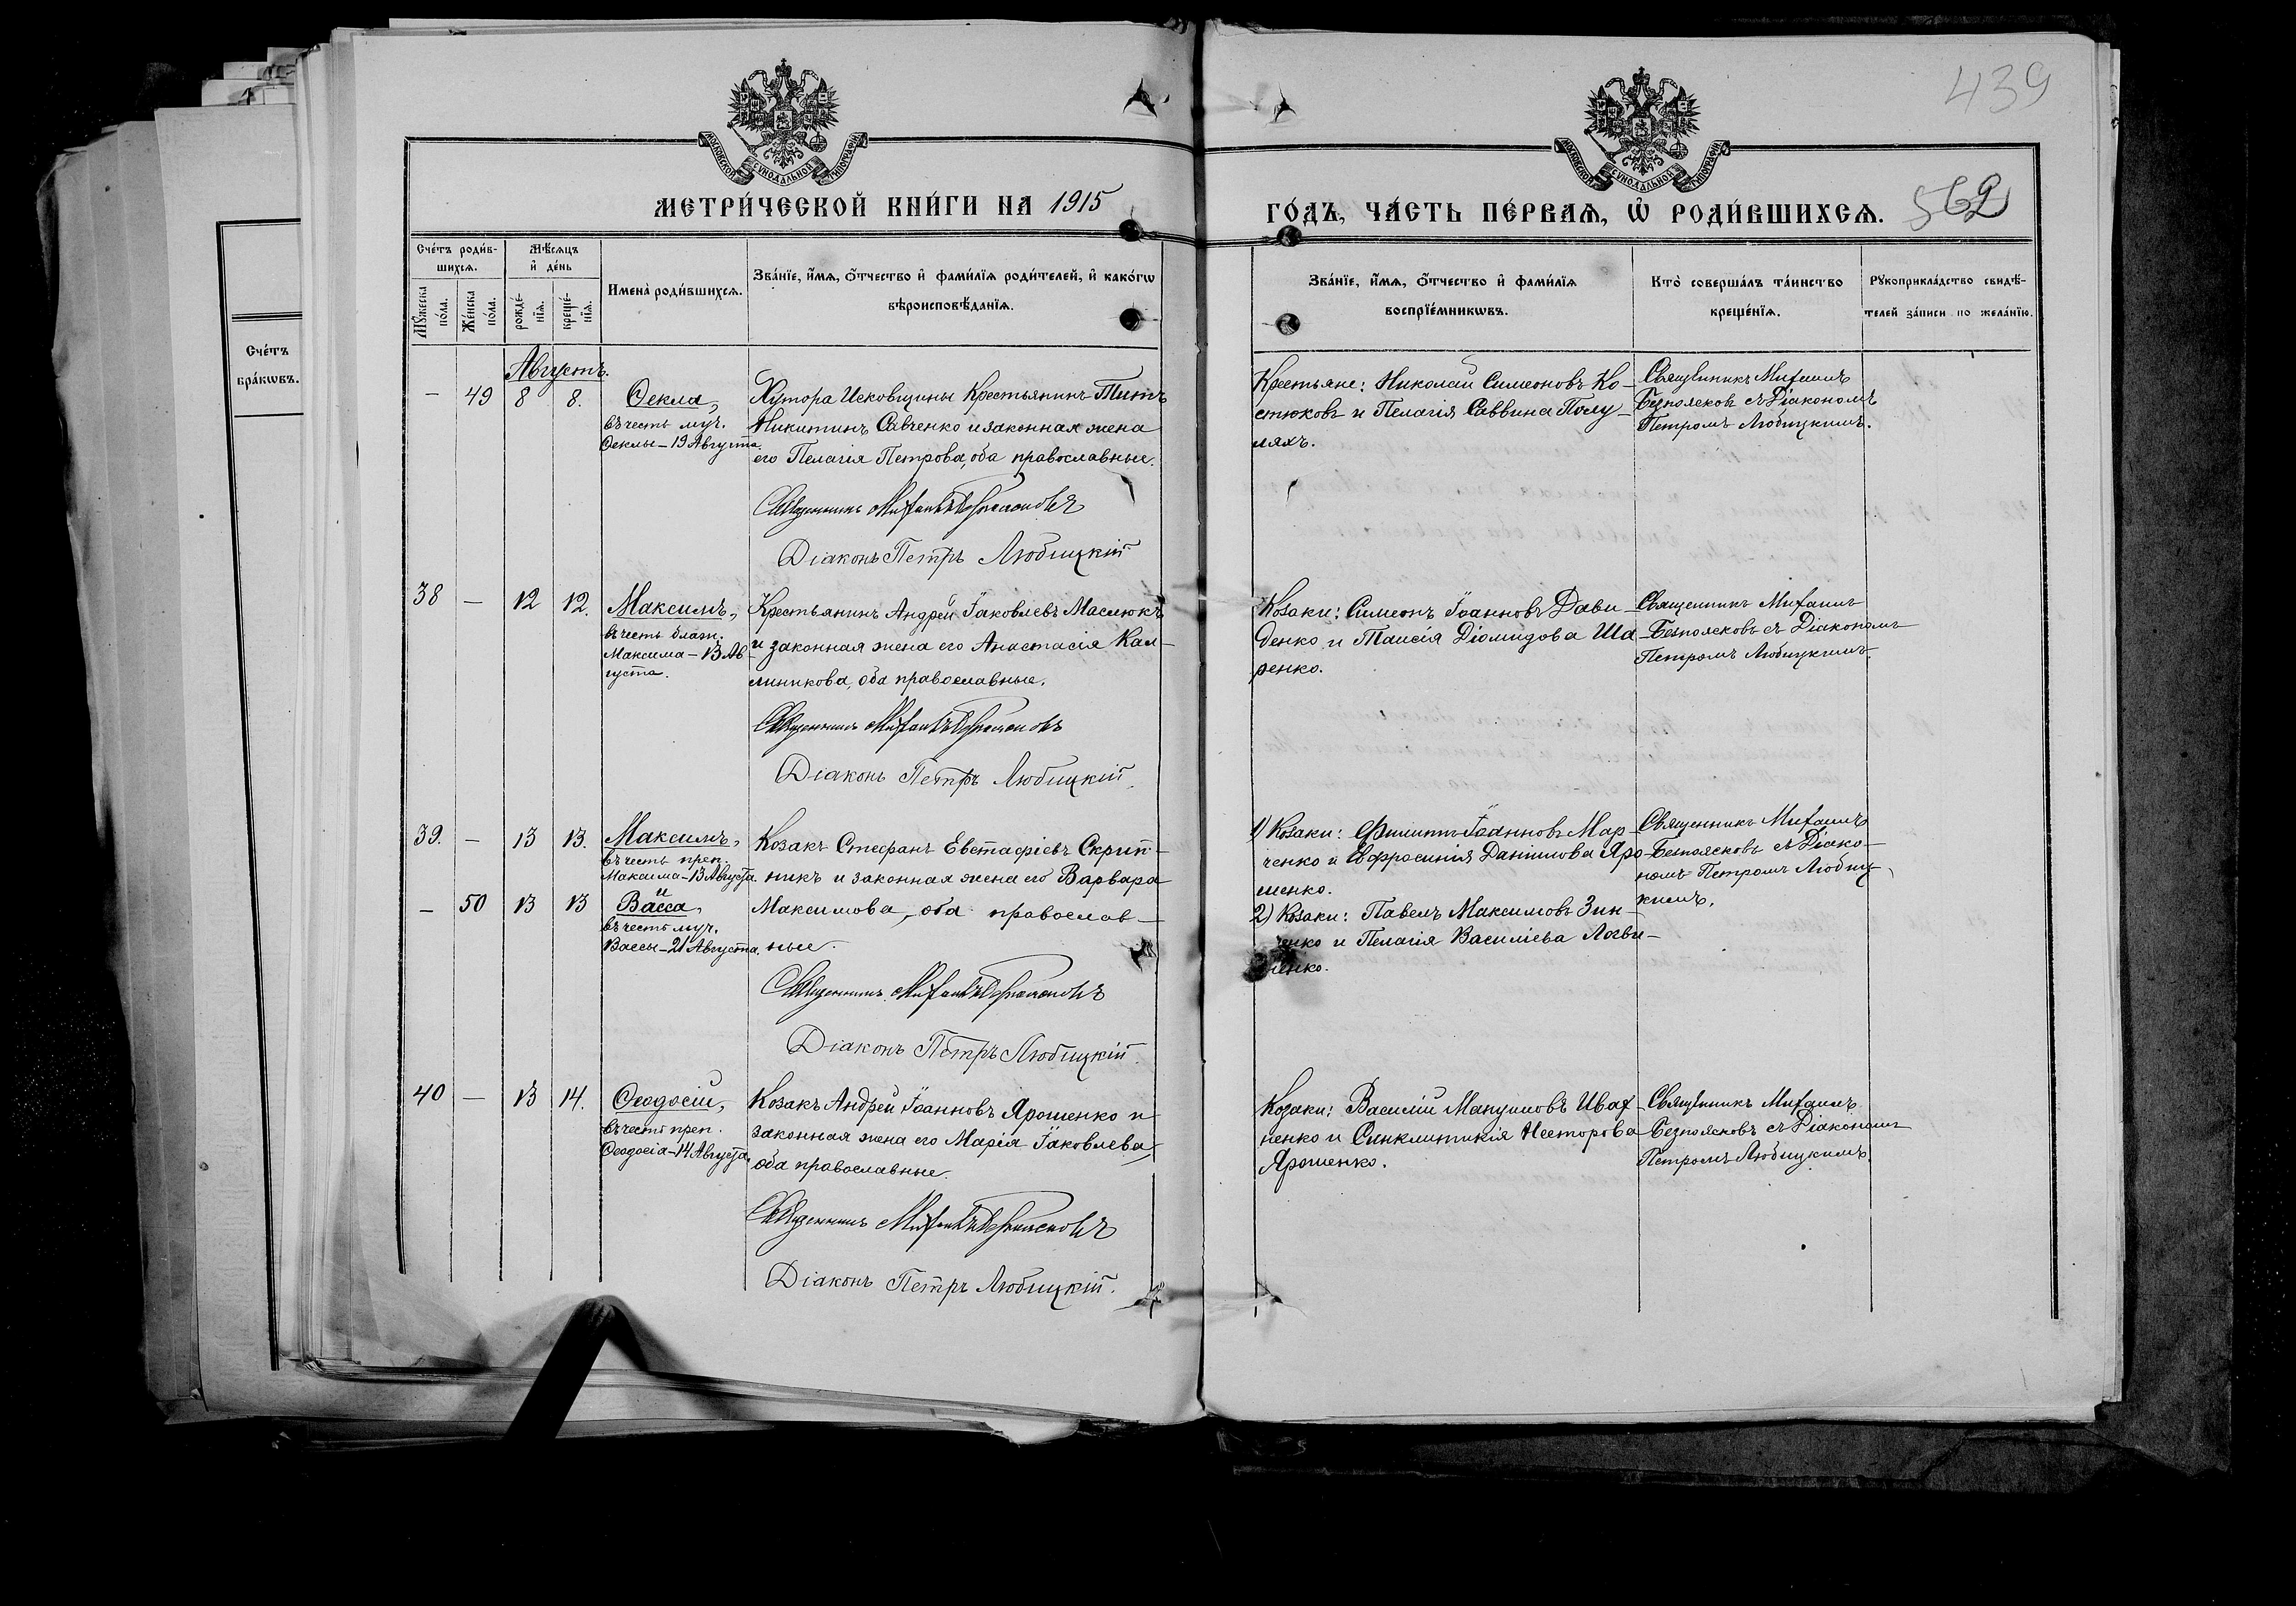 439
МОСКОВСКОЙ СУНОДАЛЬНОЙ ТИПОГРАФІИ
МОСКОВСКОЙ СУНОДАЛЬНОЙ ТИПОГРАФІИ
МЕТРИ́ЧЕСКОЙ КНИ́ГИ НА 1915
ГО́ДЪ, ЧА́СТЬ ПЕ́РВАѦ, Ѡ҆ РОДИ́ВШИХСѦ. 562
Сче́тъ
бра́кωвъ.
Сче́тъ роди́в-
шихсѧ.
Мꙋ́жеска
по́ла.
Же́нска
по́ла.
Мѣ́сѧцъ
и҆ де́нь
рожде́-
нїѧ.
креще́-
нїѧ.
Имена̀ роди́вшихсѧ.
Зва́нїе, и҆́мѧ, ѻ҆́тчество и҆ фами́лїѧ роди́телей, и҆ како́гѡ
вѣроисповѣ́данїѧ.
Зва́нїе, и҆́мѧ, ѻ҆́тчество и҆ фами́лїѧ
воспрїе́мникѡвъ.
Кто̀ соверша́лъ та́инство
креще́нїѧ.
Рꙋкоприкла́дство свидѣ́-
телей за́писи по жела́нїю.
Августъ.
— 49 8 8.
Ѳекла,
въ честь муч.
Ѳеклы – 19 Августа.
Хутора Исковщины Крестьянинъ Титъ
Никитинъ Савченко и законная жена
его Пелагія Петрова, оба православные.
Священникъ Митфанъ Безпоясковъ
Діаконъ Петръ Любицкій
Крестьяне: Николай Симеоновъ Ко-
стюковъ и Пелагія Саввина Полу-
ляхъ.
Священникъ
Безпоясковъ съ Діакономъ
Петромъ Любицкимъ.
38 — 12 12.
Максимъ,
въ честь блаж.
Максима – 13 Ав-
густа.
Крестьянинъ Андрей Іаковлевъ Маслюкъ
и законная жена его Анастасія Кал-
линикова, оба православные.
Священникъ
Діаконъ Петръ Любицкій
Козаки: Симеонъ Іоанновъ Дави-
денко и Таисія Діомидова Ша-
ренко.
Священникъ
Безпоясковъ съ Діакономъ
Петромъ Любицкимъ.
39. — 13 13.
Максимъ,
въ честь преп.
Максима – 13 Августа
и
— 50 13 13
Васса,
въ честь муч.
Вассы – 21 Августа.
Козакъ Стефанъ Евстафіевъ Скрип-
никъ и законная жена его Варвара
Максимова, оба православ-
ные.
Священникъ
Діаконъ Петръ Любицкій
1) Козаки: Филиппъ Іоанновъ Мар-
ченко и Евфросинія Даніилова Яро-
шенко.
2) Козаки: Павелъ Максимовъ Зин-
ченко и Пелагія Василіева Логви-
ненко.
Священникъ
Безпоясковъ съ Діако-
номъ Петромъ Любиц-
кимъ.
40 — 13 14.
Ѳеодосій,
въ честь преп.
Ѳеодосія – 14 Августа.
Козакъ Андрей Іоанновъ Ярошенко и
законная жена его Марія Іаковлева,
оба православные.
Священникъ
Діаконъ Петръ Любицкій.
Козаки: Василій Мануиловъ Ивах-
ненко и Синклитикія Несторова
Ярошенко.
Священникъ
Безпоясковъ съ Діакономъ
Петромъ Любицкимъ.